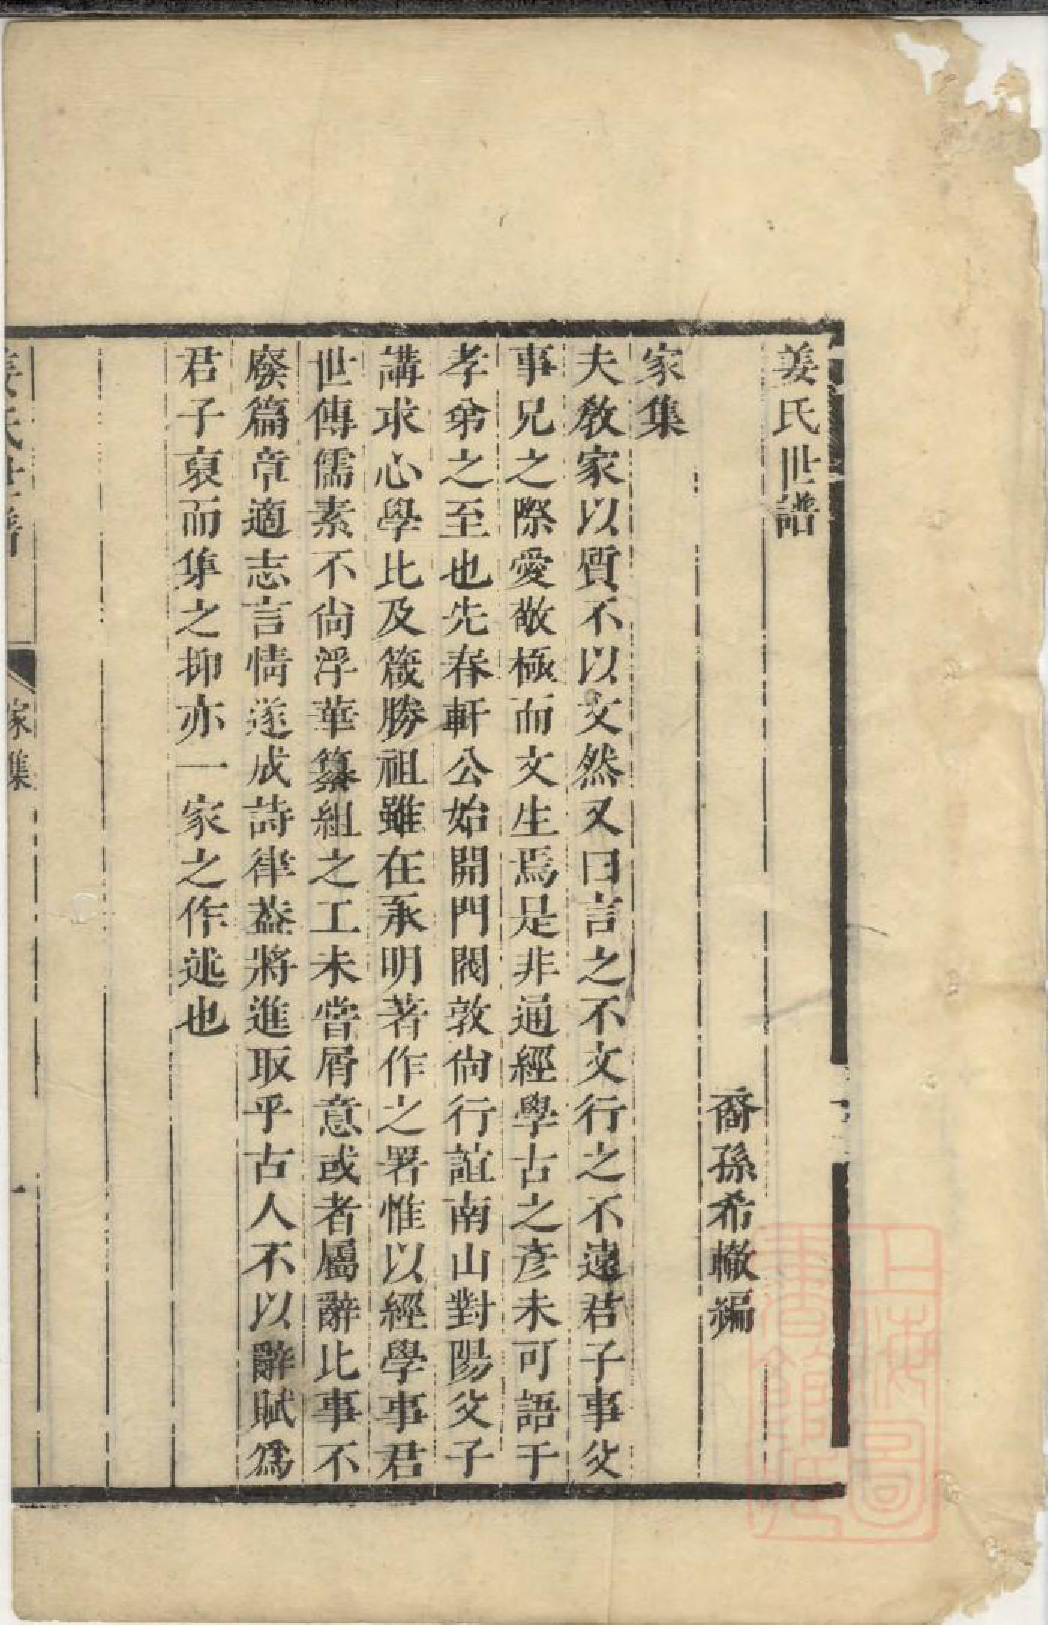 姜氏世譜
裔孫希轍編
家集
夫敎家以質不以文然又曰言之不文行之不遠君子事父
事兄之際愛敬極而文生焉是非通經學古之彥未可語于
孝弟之至也先春軒公始開門閥敦尙行誼南山對陽父子
講求心學比及箴勝祖雖在承明著作之署惟以經學事君
世傳儒素不尙浮華纂組之工未嘗屑意或者屬辭比事不
廢篇章適志言情遂成詩律葢將進取乎古人不以辭賦爲
君子裒而集之抑亦一家之作述也
姜氏世譜
家集
一
上海圖書館藏